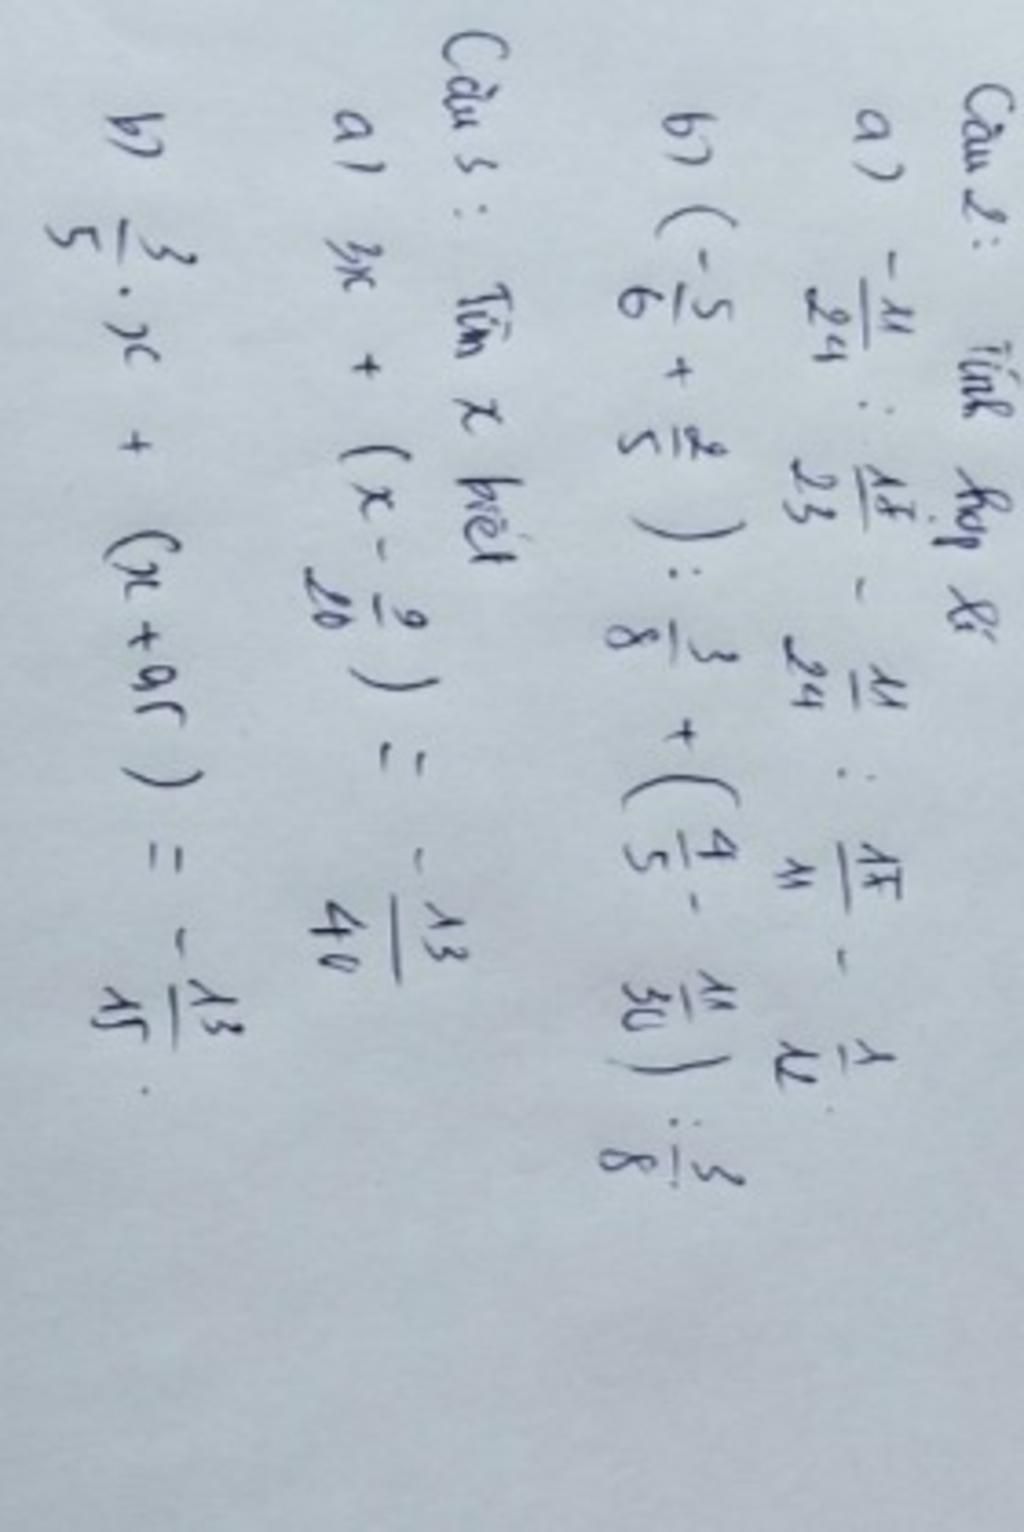 Câu 2: Tính hợp lí
a) -11/24 : 17/23 - 11/24 : 17/11 - 1/12
b) (-5/6 + 2/5) : 3/8 + (4/5 - 11/30) : 3/8
Câu 3: Tìm x biết
a) 3x + (x - 9/20) = -13/40
b) 3/5 . x + (x + 0,5) = -13/15.